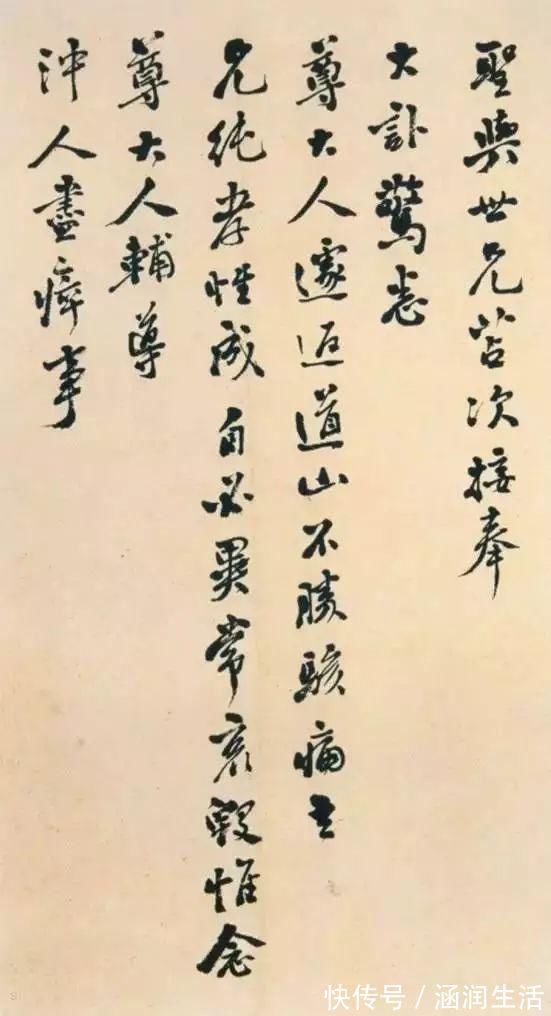 聖輿世兄苫次接奉
大訃驚悉
尊大人遽返道山不勝駭痛吾
兄純孝性成自必異常哀毀惟念
尊大人輔導
沖人盡瘁事
快传号/涵润生活